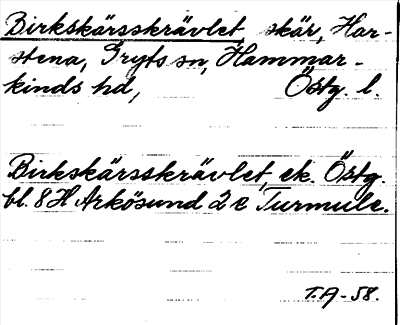 Birkskärsskrävlet, skär, Har-
stena, Gryts sn, Hammar-
kinds hd, Östg. l.
Birkskärsskrävlet, ek. Östg.
bl. 8 H Arkösund 2 e Turmulc.
T.A-58.